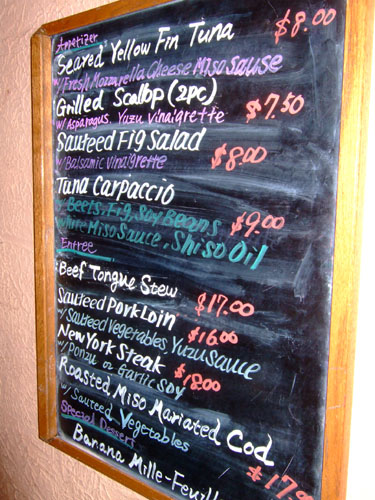 Appetizer
Seared Yellow Fin Tuna $8.00
w/Fresh Mozzarella Cheese Miso Sause
Grilled Scallop (2pc) $7.50
w/Asparagus. Yuzu Vinaigrette
Sauteed Fig Salad
w/Balsamic Vinaigrette $8.00
Tuna Carpaccio
w/Beets, Fig, Soy Beans $9.00
White Miso Sauce, Shiso Oil
Entree
Beef Tongue Stew $17.00
Sauteed Pork Loin $16.00
w/Sauteed Vegetables, Yuzu Sauce
New York Steak $18.00
w/Ponzu or Garlic Soy
Roasted Miso Mariated Cod
w/ Sauteed Vegetables
Special Dessert
Banana Mille-Feuill